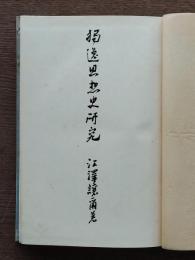 獨逸思想史研究 江澤讓爾著